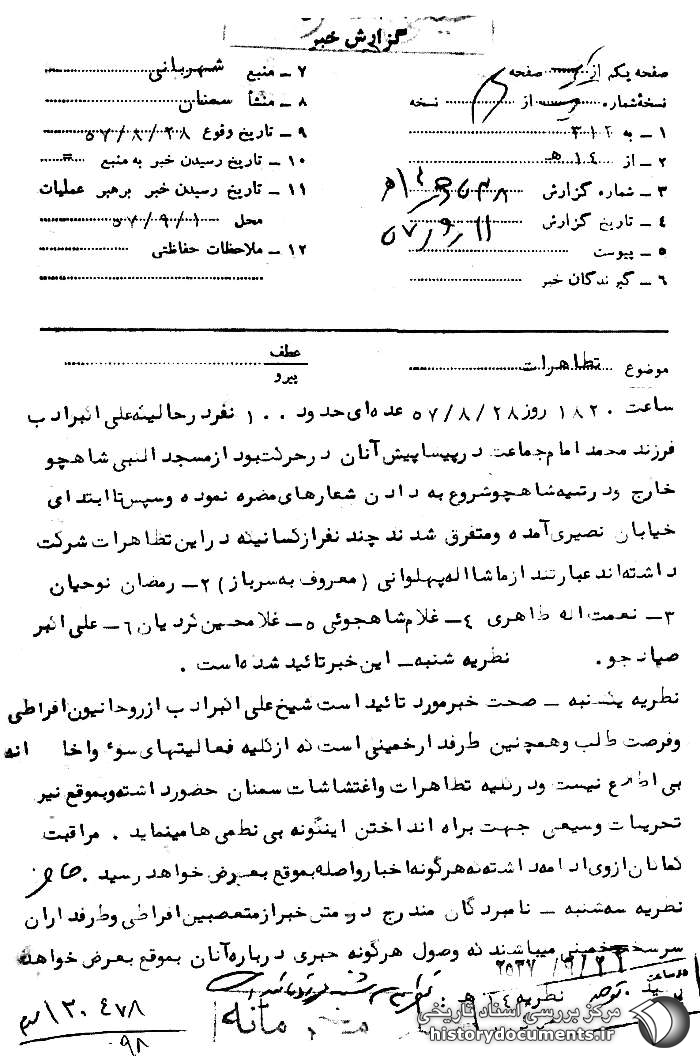 گزارش خبر
صفحه یکم از صفحه
نسخه شماره از نسخه
۱ ـ به ۳۱۲
۲ ـ از ۱۴ هـ
۳ ـ شماره گزارش
۴ ـ تاریخ گزارش ۵۷ر۹ر۱۱
۵ ـ پیوست
۶ ـ گیرندگان خبر
۷ ـ منبع شهربانی
۸ ـ منشأ سمنان
۹ ـ تاریخ وقوع ۵۷/۸/۲۸
۱۰ ـ تاریخ رسیدن خبر به منبع =
۱۱ ـ تاریخ رسیدن خبر برهبر عملیات
محل ۵۷/۹/۱
۱۲ ـ ملاحظات حفاظتی
موضوع تظاهرات
عطف
پیرو
ساعت ۱۸۲۰ روز ۵۷/۸/۲۸ عده‌ای حدود ۱۰۰ نفر در حالیکه علی اکبر ادب
فرزند محمد امام جماعت در پیساپیش آنان در حرکت بود از مسجد النبی شاهجو
خارج و در تکیه شاهجو شروع به دادن شعارهای مضره نموده و سپس تا ابتدای
خیابان نصیری آمده و متفرق شدند چند نفر از کسانیکه در این تظاهرات شرکت
داشته‌اند عبارتند از ماشااله پهلوانی (معروف به سرباز) ۲ـ رمضان نوحیان
۳ـ نعمت اله طاهری ۴ـ غلام شاهجوئی ۵ـ غلامحسین کردیان ۶ـ علی اکبر
صیادجو. نظریه شنبه ـ این خبر تائید شده است.
نظریه یکشنبه ـ صحت خبر مورد تائید است شیخ علی اکبر ادب از روحانیون افراطی
و فرصت طلب و همچنین طرفدار خمینی است که از کلیه فعالیتهای سوء و اخا انه
بی اطلاع نیست و در کلیه تظاهرات و اغتشاشات سمنان حضور داشته و بموقع نیز
تحریکات وسیعی جهت براه انداختن اینگونه بی نظمی‌ها مینماید. مراقبت
کماکان از وی ادامه داشته که هرگونه اخبار واصله بموقع بعرض خواهد رسید.
نظریه سه‌شنبه ـ نامبردگان مندرج در متن خبر از متعصبین افراطی و طرفداران
سرسخت خمینی میباشند که وصول هرگونه خبری درباره آنان بموقع بعرض خواهد
رسید. نظریه ۱۴ هـ :
۲۵۳۷/۹/۲۲
۱۳۰۴۷۸
۹۸
مرکز بررسی اسناد تاریخی
historydocuments.ir